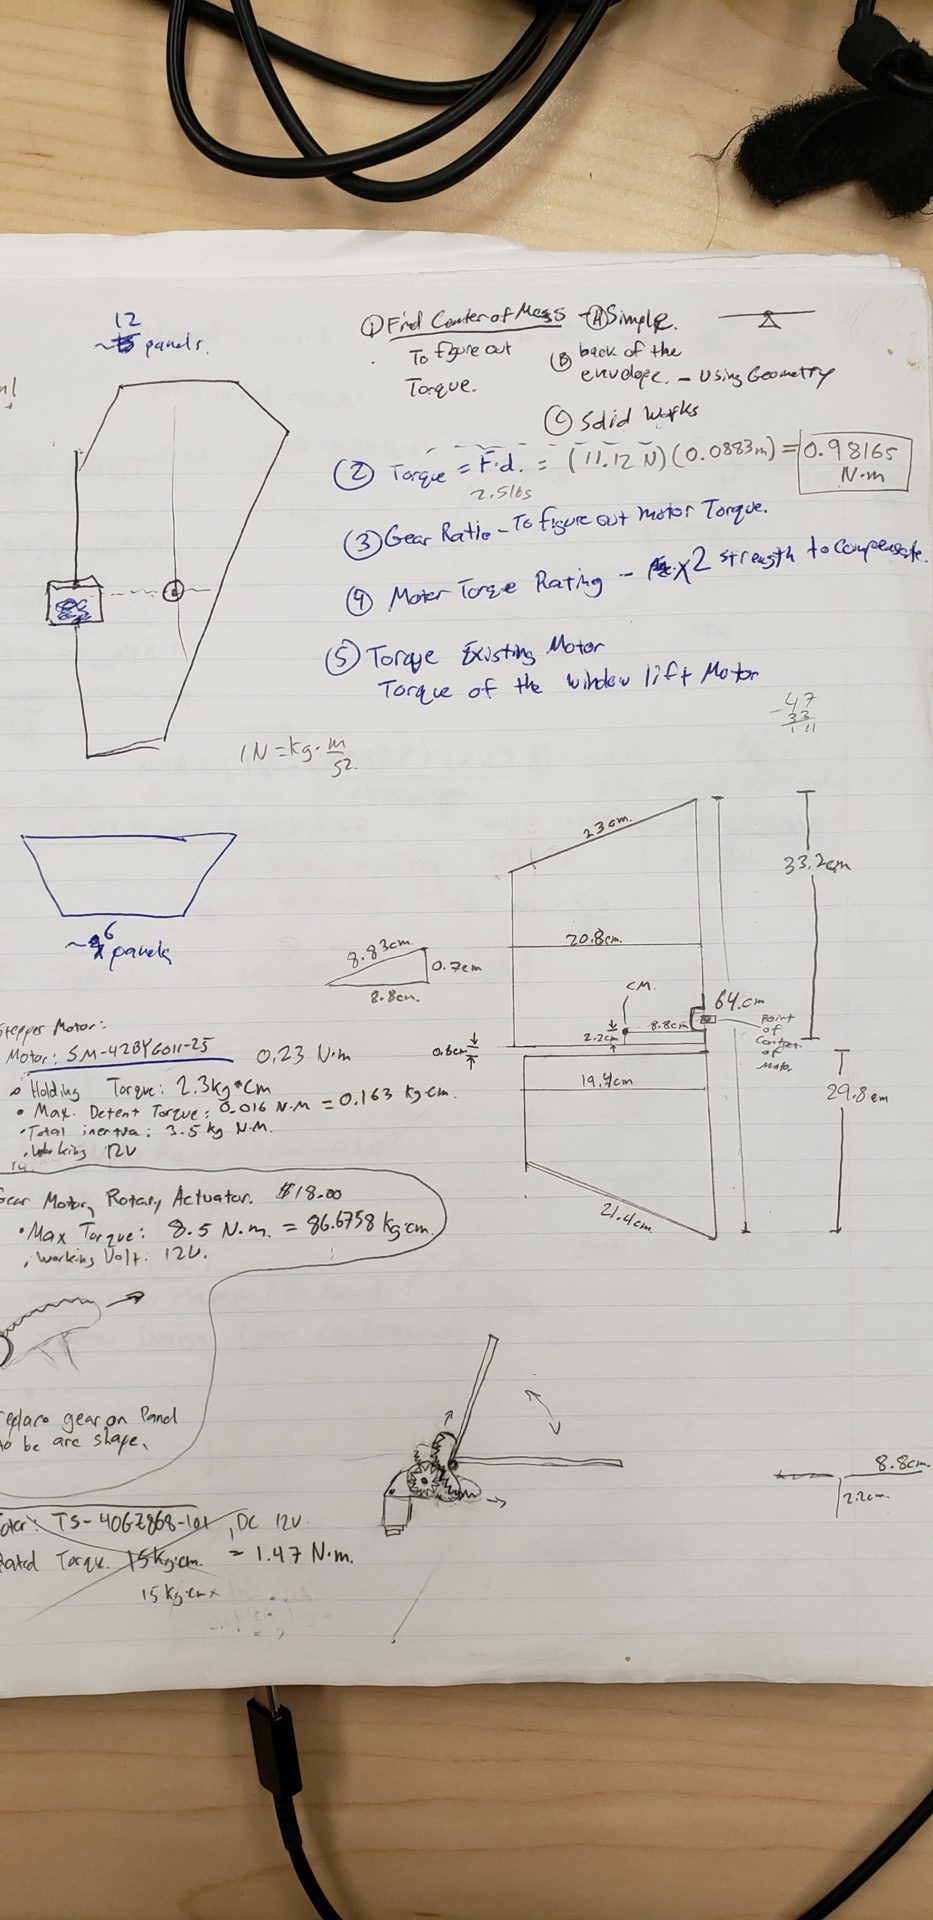 12
~ panels.
① Find Center of Mass
To figure out
Torque.
Ⓐ Simple.
Ⓑ back of the
envelope. - Using Geometry
Ⓒ Solid Works
② Torque = F·d. = (11.12 N)(0.0883m) = 0.98165
N·m
2.5lbs
③ Gear Ratio - To figure out motor Torque.
④ Motor Torque Rating - x2 strength to compensate.
⑤ Torque Existing Motor
Torque of the window lift Motor
1N = kg·m/s2.
47
33
~6 panels
23cm.
33.2cm
20.8cm.
8.83cm.
0.7cm
8.8cm.
C.M.
2.2cm
8.8cm
64.cm
Point
of
of
0.6cm
19.4cm
29.8cm
21.4cm.
Stepper Motor:
Motor: SM-42BYG011-25
0.23 N·m
• Holding Torque: 2.3kg*cm
• Max. Detent Torque: 0.016 N·M = 0.163 kg·cm.
• Total inertia: 3.5kg N·M.
• Working 12V
Gear Motor, Rotary Actuator. $18.00
• Max Torque: 8.5 N.m. = 86.6758 kg·cm.
• Working Volt: 12V.
replace gear on Panel
to be arc shape.
8.8cm.
2.2cm.
TS-40GZ868-101, DC 12V.
Rated Torque. 15kg·cm. = 1.47 N·m.
15kg·cm x